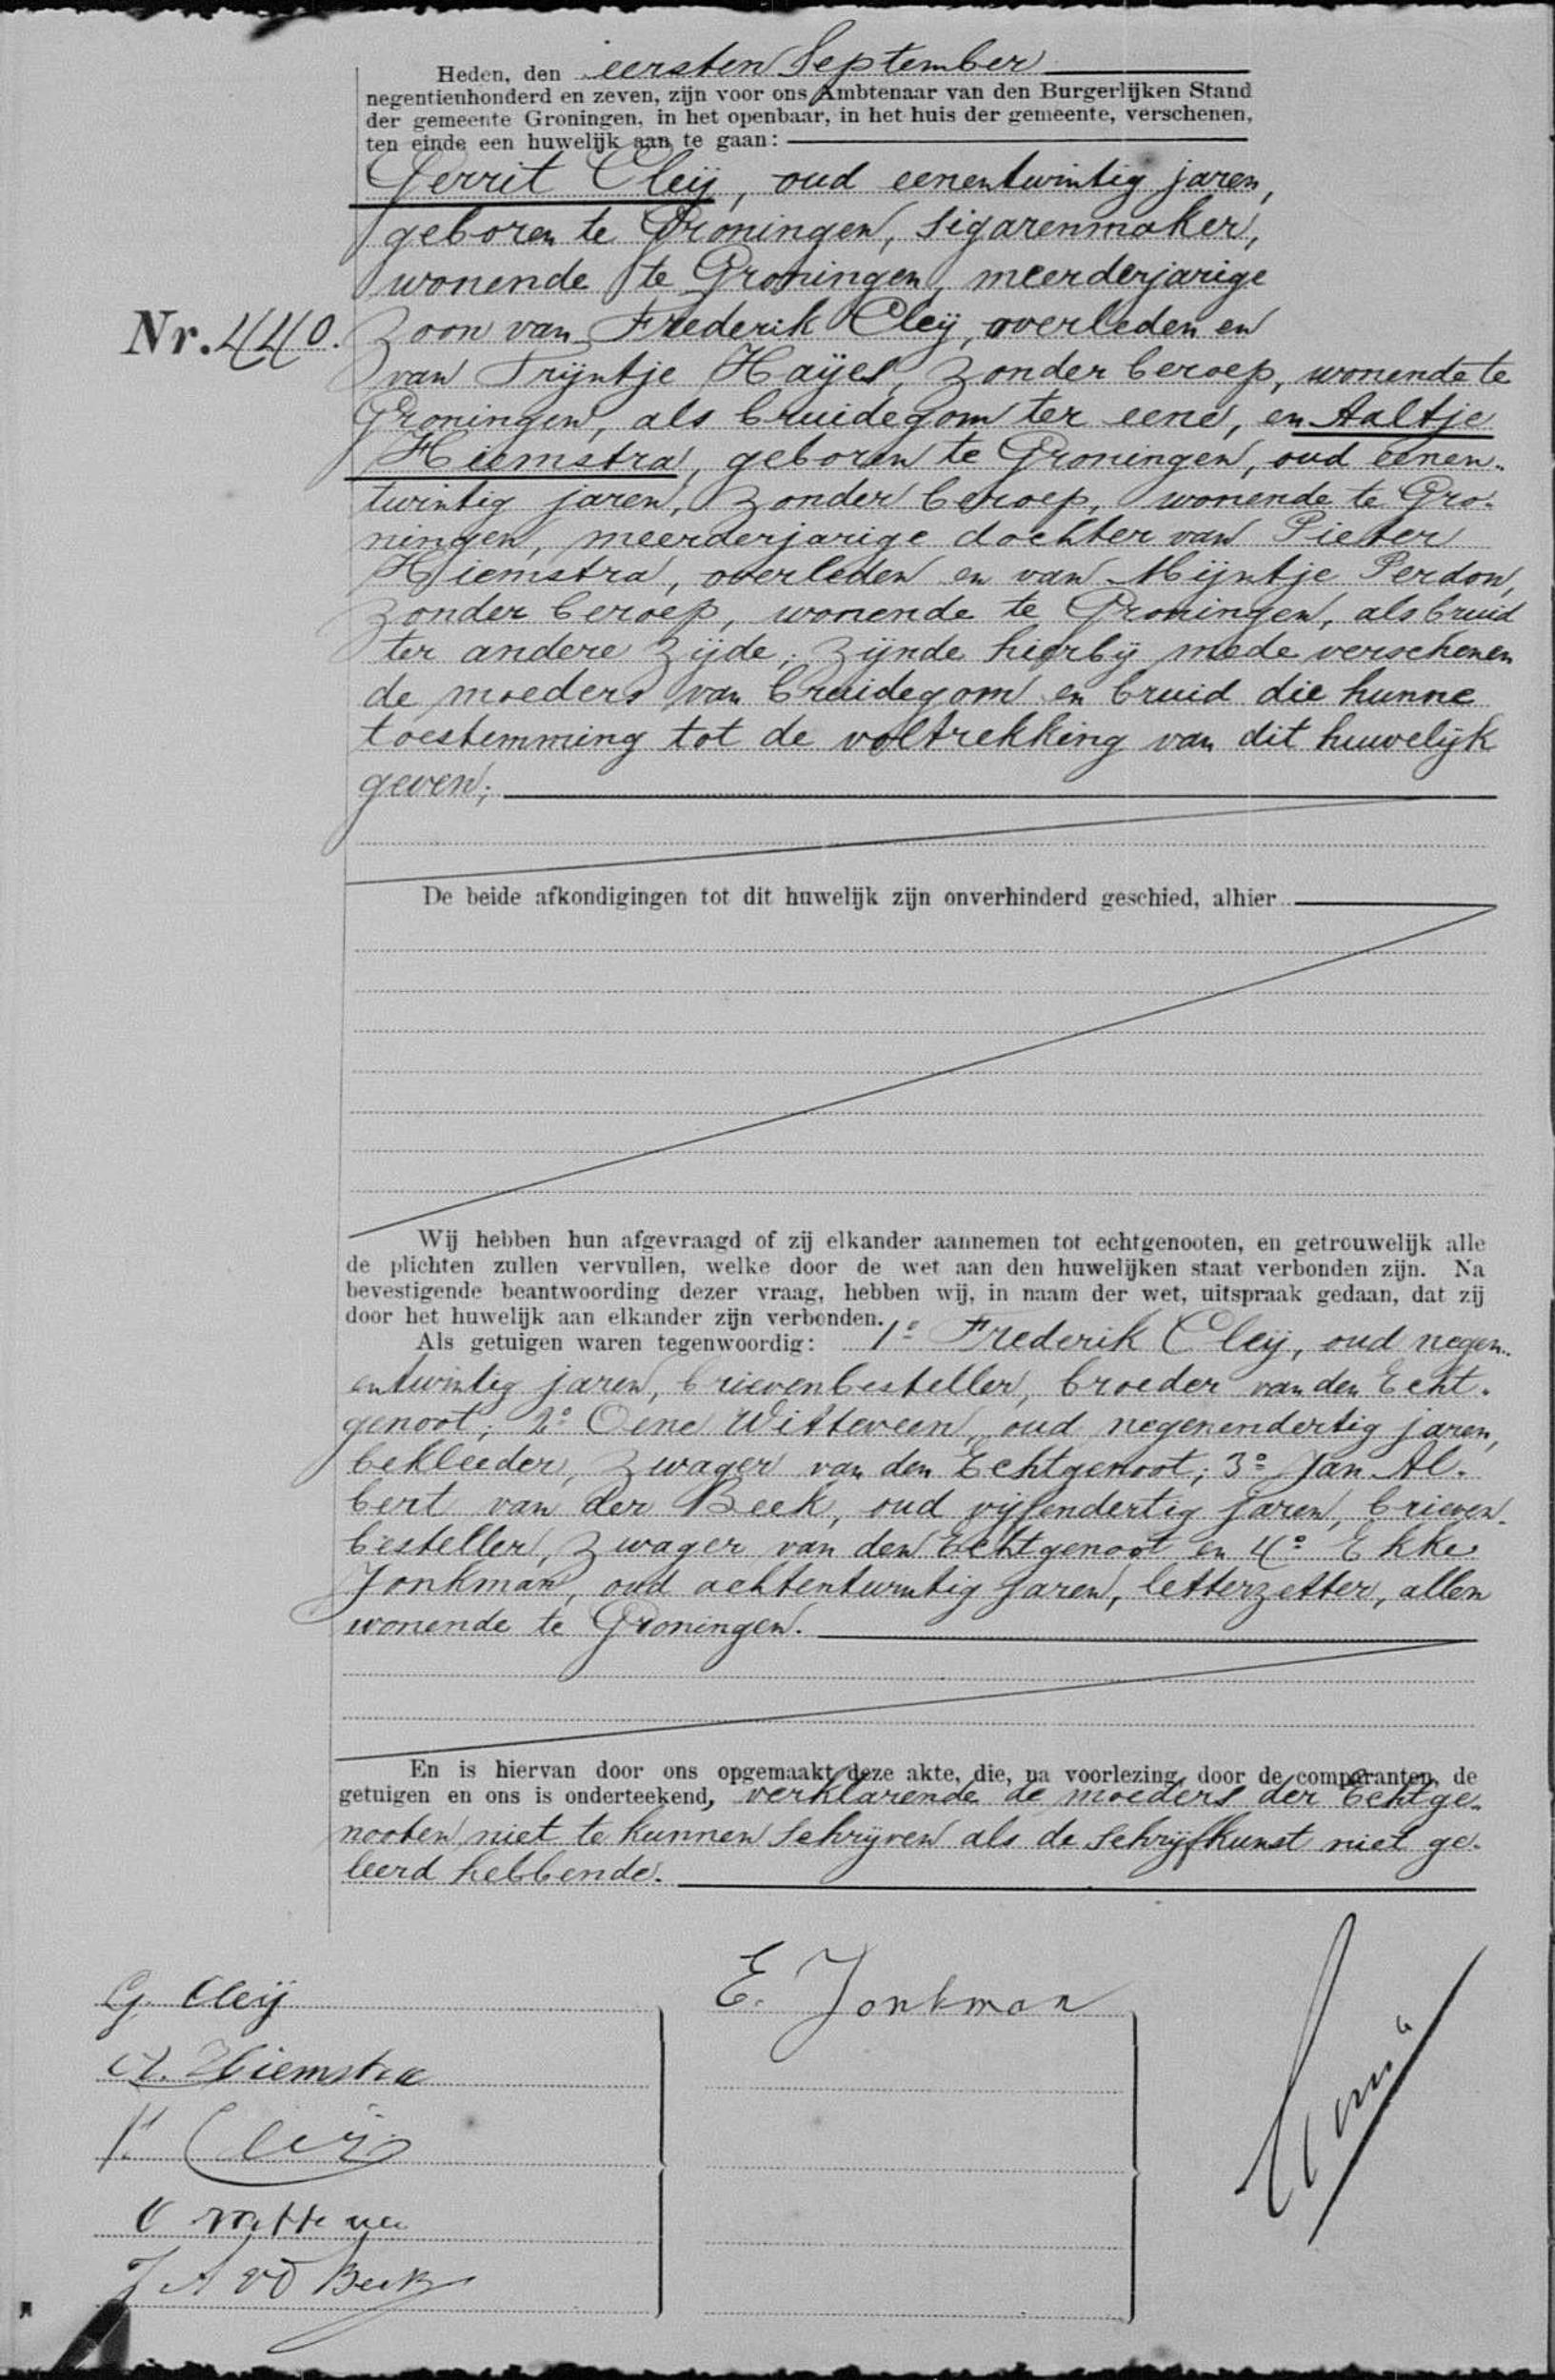 Heden, den eersten September
negentienhonderd en zeven, zijn voor ons Ambtenaar van den Burgerlijken Stand
der gemeente Groningen, in het openbaar, in het huis der gemeente, verschenen,
ten einde een huwelijk aan te gaan:
Gerrit Cleij, oud eenentwintig jaren,
geboren te Groningen, sigarenmaker,
wonende te Groningen, meerderjarige
Nr. 440.
zoon van Frederik Cleij, overleden en
van Trijntje Haijes, zonder beroep, wonende te
Groningen, als bruidegom ter eene, en Aaltje
Hiemstra, geboren te Groningen, oud eenen-
twintig jaren, zonder beroep, wonende te Gro-
ningen, meerderjarige dochter van Pieter
Hiemstra, overleden en van Mijntje Perdon,
zonder beroep, wonende te Groningen, als bruid
ter andere zijde; zijnde hierbij mede verschenen
de moeders van bruidegom en bruid die hunne
toestemming tot de voltrekking van dit huwelijk
geven;
De beide afkondigingen tot dit huwelijk zijn onverhinderd geschied, alhier
Wij hebben hun afgevraagd of zij elkander aannemen tot echtgenooten, en getrouwelijk alle
de plichten zullen vervullen, welke door de wet aan den huwelijken staat verbonden zijn. Na
bevestigende beantwoording dezer vraag, hebben wij, in naam der wet, uitspraak gedaan, dat zij
door het huwelijk aan elkander zijn verbonden.
Als getuigen waren tegenwoordig: 1º Frederik Cleij, oud negen-
entwintig jaren, brievenbesteller, broeder van den Echt-
genoot; 2º Oene Witteveen, oud negenendertig jaren,
bekleeder, zwager van den Echtgenoot; 3º Jan Al-
bert van der Beek, oud vijfendertig jaren, brieven-
besteller, zwager van den Echtgenoot en 4º Ekke
Jonkman, oud achtentwintig jaren, letterzetter, allen
wonende te Groningen.
En is hiervan door ons opgemaakt deze akte, die, na voorlezing door de comparanten, de
getuigen en ons is onderteekend, verklarende de moeders der Echtge-
nooten niet te kunnen schrijven als de schrijfkunst niet ge-
leerd hebbende.
G. Cleij
A. Hiemstra
F. Cleij
O Witteveen
J A v D Beek
E. Jonkman